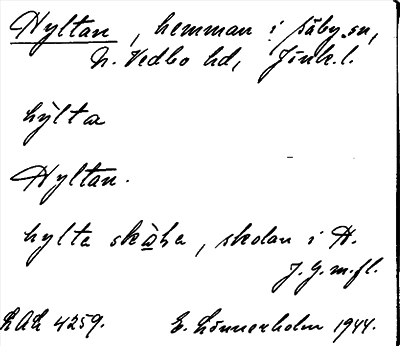 Hyltan, hemman i Säby sn,
N. Vedbo hd, Jönk. l.
hy̍lta
Hyltan.
hylta skɷla, skolan i H.
J. G. m. fl.
LAL 4259. E. Lönnerholm 1944.